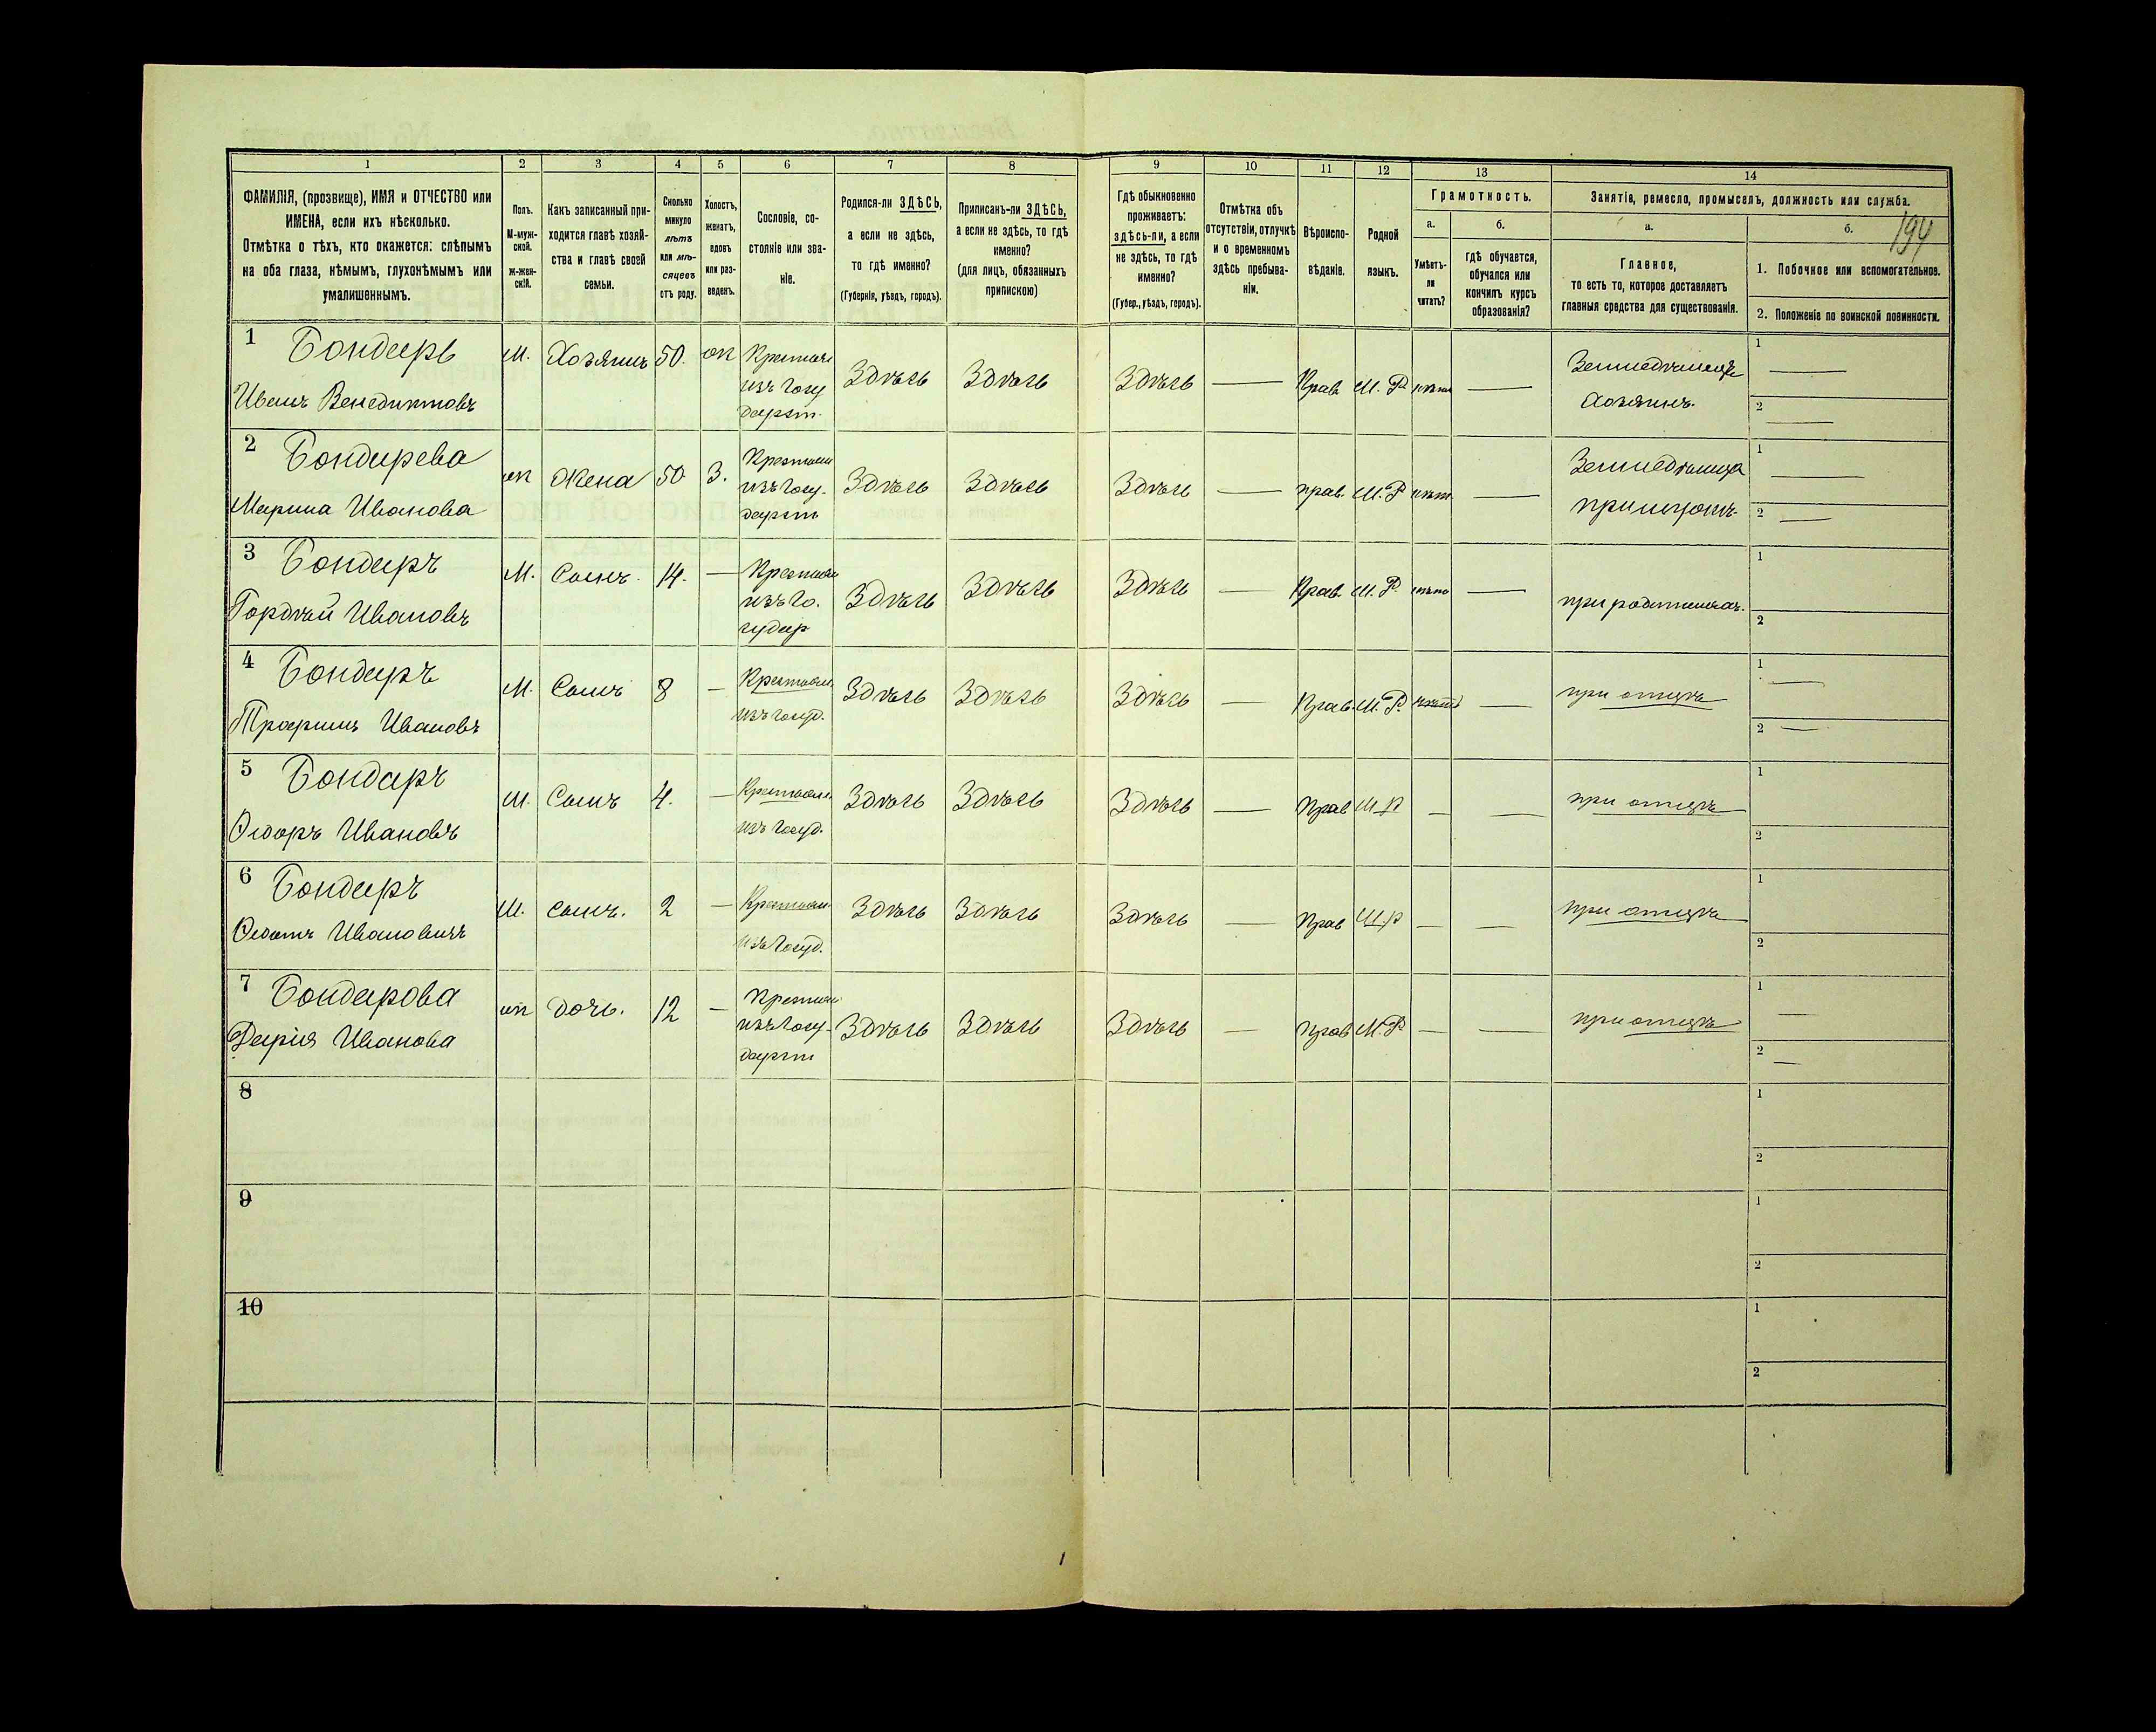 1 2 3 4 5 6 7 8 9 10 11 12 13 14
ФАМИЛІЯ, (прозвище), ИМЯ и ОТЧЕСТВО или
ИМЕНА, если ихъ нѣсколько.
Отмѣтка о тѣхъ, кто окажется: слѣпымъ
на оба глаза, нѣмымъ, глухонѣмымъ или
умалишеннымъ.
Полъ.
М-муж-
ской.
Ж-жен-
скій.
Какъ записанный при-
ходится главѣ хозяй-
ства и главѣ своей
семьи.
Сколько
минуло
лѣтъ
или мѣ-
сяцевъ
отъ роду.
Холостъ,
женатъ,
вдовъ
или раз-
веденъ.
Сословіе, со-
стояніе или зва-
ніе.
Родился-ли ЗДѢСЬ,
а если не здѣсь,
то гдѣ именно?
(Губернія, уѣздъ, городъ).
Приписанъ-ли ЗДѢСЬ,
а если не здѣсь, то гдѣ
именно?
(для лицъ, обязанныхъ
припискою)
Гдѣ обыкновенно
проживаетъ:
здѣсь-ли, а если
не здѣсь, то гдѣ
именно?
(Губер., уѣздъ, городъ).
Отмѣтка объ
отсутствіи, отлучкѣ
и о временномъ
здѣсь пребыва-
ніи.
Вѣроиспо-
вѣданіе.
Родной
языкъ.
Грамотность.
а.
Умѣетъ-
ли
читать?
б.
гдѣ обучается,
обучался или
кончилъ курсъ
образованія?
Занятіе, ремесло, промыселъ, должность или служба.
а.
Главное,
то есть то, которое доставляетъ
главныя средства для существованія.
б.
194
1. Побочное или вспомогательное.
2. Положеніе по воинской повинности.
1 Бондарь
Иванъ Венедиктовъ
М. Хозяинъ 50. ж
Крестьян
изъ Госу
дарст.
Здѣсь Здѣсь Здѣсь — Прав. М. Р. нѣтъ —
Земледѣлецъ
Хозяинъ.
1 —
2 —
2 Бондарева
Марина Иванова
ж Жена 50 З.
Крестьян
изъ Госу-
дарст.
Здѣсь Здѣсь Здѣсь — прав. М. Р нѣт. —
1 —
2 —
3 Бондаръ
Гордѣй Ивановъ
М. Сынъ. 14. —
Крестьян
изъ Го.
судар
Здѣсь Здѣсь Здѣсь — Прав. М. Р. нѣтъ —
при родителяхъ.
1
2
4 Бондаръ
Трофимъ Ивановъ
М. Сынъ 8 —
Крестьян.
изъ Госуд.
Здѣсь Здѣсь Здѣсь — Прав. М. Р. нѣтъ —
при отцѣ
1 —
2 —
5 Бондаръ
Ѳедоръ Ивановъ
М. Сынъ 4. —
Крестьян.
изъ Госуд.
Здѣсь Здѣсь Здѣсь — Прав М р — —
при отцѣ
1
2
6 Бондаръ
Ивановичъ
М. сынъ. 2 —
Крестьян.
изъ Госуд.
Здѣсь Здѣсь Здѣсь — Прав М р — —
при отцѣ
1
2
7 Бондарова
Дарія Иванова
ж дочь. 12 —
Крестьян
изъ Госу-
дарст
Здѣсь Здѣсь Здѣсь — Прав М. Р — —
при отцѣ
1 —
2 —
8
1
2
9
1
2
10
1
2